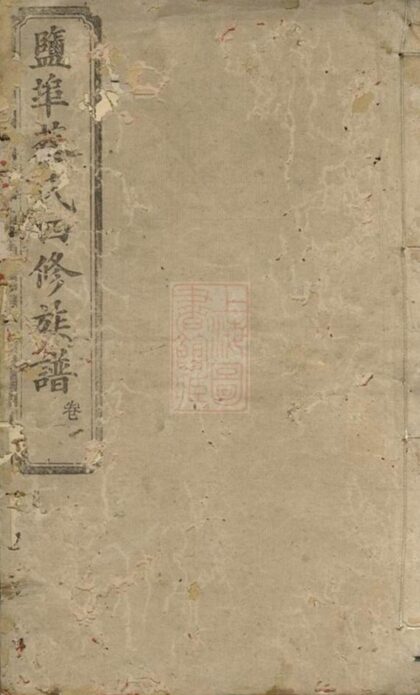 鹽埠蔡氏四修族譜
卷
上海圖書館藏